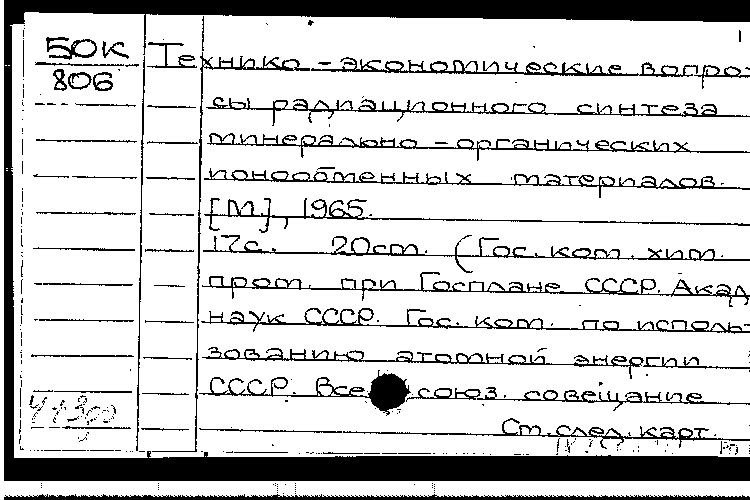 50К
806
Технико-экономические вопро-
сы радиационного синтеза
минерально-органических
ионообменных материалов.
[М], 1965.
17с. 20см. (Гос. ком. хим.
пром. при Госплане СССР. Акад.
наук СССР. Гос. ком. по исполь-
зованию атомной энергии
СССР. Всесоюз. совещание
См. след. карт.